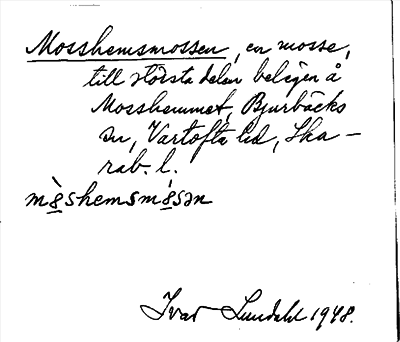 Mosshemsmossen, en mosse,
till största delen belägen å
Mosshemmet, Bjurbäcks
sn, Vartofta hd, Ska-
rab. l.
mò̱shemsmó̱sən
Ivar Lundahl 1948.